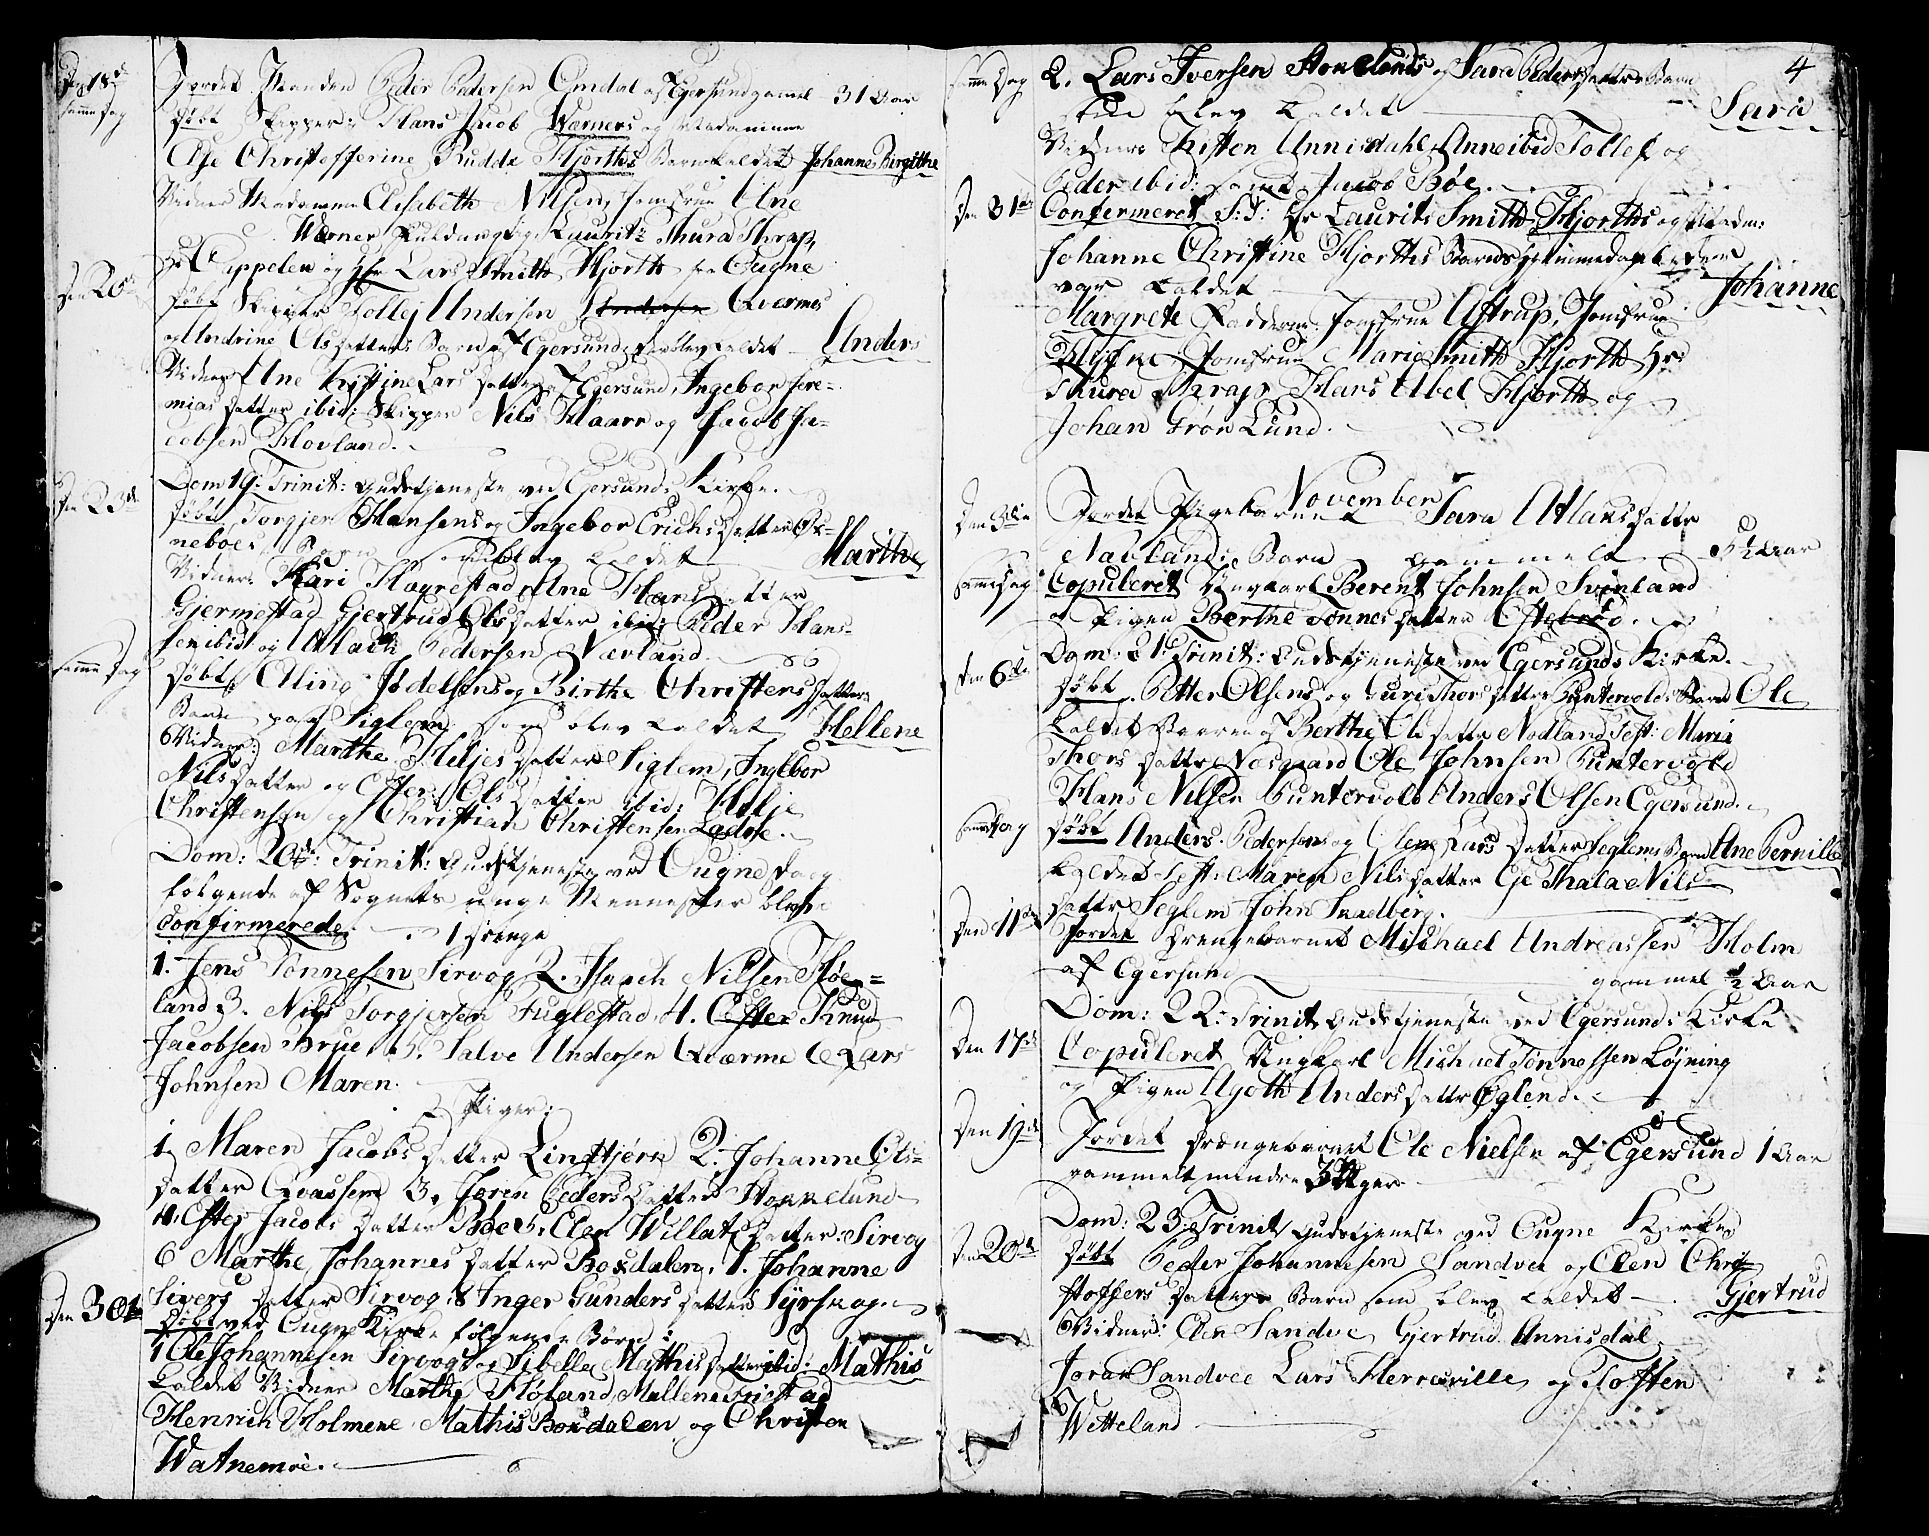 Den 18de Jordet Manden Peder Pedersen Omdal af Egersund gamel 31 Aar
samme dag Døbt Skipper Hans Jacob Wærners og Madamme
Else Christofferine Rudde Hjorths Barn kaldet Johanne Birgithe
Vidner Madamme Elisabeth Nilsen, Jomfrue Ane
Werner Lauritz Thura Thrap,
Hr Cappelen og Hr Lars Smith Hjorth fra Ougne
Den 20de Døbt Skipper Tollef Andersen Qværmes
og Andrine Olsdatters Barn af Egersund, som blev kaldet Anders
Vidner Ane Kistine Larsdatter af Egersund, Ingebor Jere-
miasdatter ibid: Skipper Nils Haarr og Jacob Ja-
cobsen Hovland.
Den 23de Dom 19. Trinit: Gudstjeneste ved Egersunds Kirke.
Døbt Torgjer Hansens og Ingebor Erichsdatter
neboes Barn som blev kaldet Marthe
Vidner: Kari Hogrestad, Ane Hansdatter
Gjermestad Gjertrud Olsdatter ibid: Peder Hans-
sen ibid og Atlach Pedersen Nævland.
samme Dag Døbt Elling Jødelsens og Birthe Christensdatters
Barn paa Siglem som blev kaldet Hellene
Vidner: Marthe Heljesdatter Siglem, Ingebor
Nilsdatter og Olsdatter ibid: Helje
Christensen og Christian Christensen Ladste.
Dom: 20de Trinit: Gudstjeneste ved Ougne da
følgende af Sognets unge Mennesker bleve
Confirmerede. 1 Drenge
1. Jens Tønnesen Sirvog 2. Isach Nilsen Høe-
land 3. Nils Torgjersen Fuglestad, 4. Knud
Jacobsen Brue, 5. Salve Andersen Qværme 6 Lars
Johnsen Maren.
2 Piger:
1. Maren Jacobsdatter Lindtjørn 2. Johanne Ols-
datter Qvassem 3. Joren Pedersdatter Stokkelund
4. Ester Jacobsdatter Bøe 5. Elen Willatsdatter Sirvog
6 Marthe Johannesdatter Boxdalen, 7. Johanne
Siversdatter Sirvog 8 Inger Gundersdatter Sirvog
Den 30te Døbt ved Ougne Kirke følgende Børn:
1 Ole Johannesen Sirvogs og Sibille Mathisdatter ibid: Mathis
kaldet Vidner Marthe Høland, Mallene Gristad
Henrich Holmene Mathis Boxdalen og Christen
Watnemoe.
4
samme Dag 2. Lars Iversen Stokelands og Sara Pedersdatters Barn
som blev kaldet Sara
Vidner Kisten Annisdahl, Anne ibid Tollef og
Peder ibid: samt Jacob Bøe.
Den 31te Confermeret S:T: Hr Laurits Smith Hjorths og Madame
Johanne Christine Hjorths Barns hjemmedaab
var kaldet Johanne
Margrete Fadderne: Jomfrue Astrup, Jomfrue
Jomfrue Marie Smith Hjorth Hr
Thura Thrap Hans Abel Hjorth og
Johan Grøn Lund.
November
Den 3die Jordet Pigebarnet Sara Atlaksdatter
Navland: Barn gammelt 5½ Aar
samme dag Copuleret Ungkarl Berent Johnsen Svinland
og Pigen Berthe Tønnesdatter Eftebrød.
Den 6te Dom: 21 Trinit: Gudstjeneste ved Egersunds Kirke.
Døbt Petter Olsens og Guri Thorsdatter Puntervolds Barn Ole
kaldet Barren af Berthe Olsdatter Nodland Test: Maria
Thorsdatter Næsgaard Ole Johnsen Puntervold
Hans Nilsen Puntervold Anders Olsen Egersund.
samme dag Døbt Anders Pedersens og Elene Larsdatter Seglems Barn Ane Pernille
kaldet Test: Maren Nilsdatter Thala Nils-
datter Seglem John Sædberg.
Den 11te Jordet Drengebarnet Michael Andreassen Holm
af Egersund gammel ½ Aar
Dom: 22: Trinit Gudstjeneste ved Egersunds Kirke
Den 17de Copuleret Ungkarl Michael Tønnessen Løjning
og Pigen Ageth Andersdatter Øglend.
Den 19de Jordet Drengebarnet Ole Nielsen af Egersund 1 Aar
gammelt mindre 3 Uger
Dom: 23: Trinit Gudstjeneste ved Ougne Kirke
Den 20de Døbt Peder Johannesen Sandvee og Elen Chri-
stoffersdatters Barn som blev kaldet Gjertrud
Vidner: Elen Sandve, Gjertrud Annisdal
Joran Sandvee Lars Herreville, og Tosten
Witteland